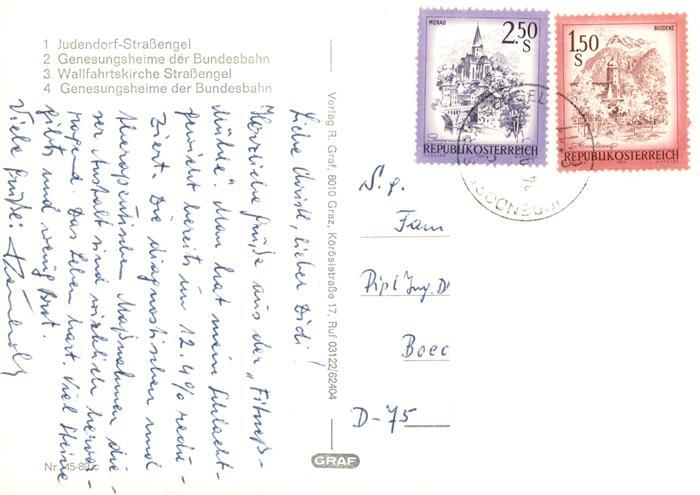 1 Judendorf-Straßengel
2 Genesungsheime der Bundesbahn
3 Wallfahrtskirche Straßengel
4 Genesungsheime der Bundesbahn
Liebe Christl, lieber Didi!
Herzliche Grüße aus der „Fitneß-
mühle". Man hat mein Schlacht-
gewicht bereits um 12.4% redu-
ziert. Die diagnostischen und
therapeutischen Maßnahmen die-
ser Anstalt sind wirklich hervor-
ragend. Das Leben hart. Viel Steine
gibts und wenig Brot.
Viele Grüße:
Nr. 45-89 c
Verlag R. Graf, 8010 Graz, Körösistraße 17, Ruf 03122/62404
GRAF
MURAU
2.50 S
REPUBLIK ÖSTERREICH
BLUDENZ
1.50 S
REPUBLIK ÖSTERREICH
S. g.
Fam
Dipl Ing. D
Boec
D-75